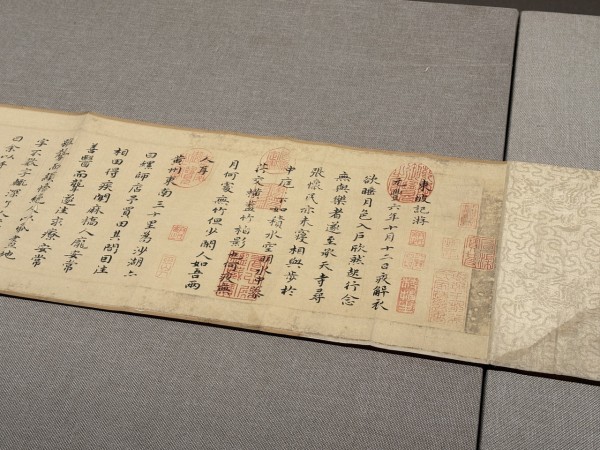 東坡記將
元豐六年十月十二日夜解衣
欲睡月色入戶欣然起行念
無與樂者遂至承天寺尋
張懷民亦未寢相與步於
中庭下如積水空明水中藻
荇交橫蓋竹柏影也何夜無
月何處無竹但少閑人如吾兩
人耳
黃州東南三十里為沙湖亦
曰螺師店予買田其間因往
相田得疾聞麻橋人龐安常
善醫而聾遂往求療安常
雖聾而穎悟絕人以紙畫地
字不數字輒深了人
曰余以手